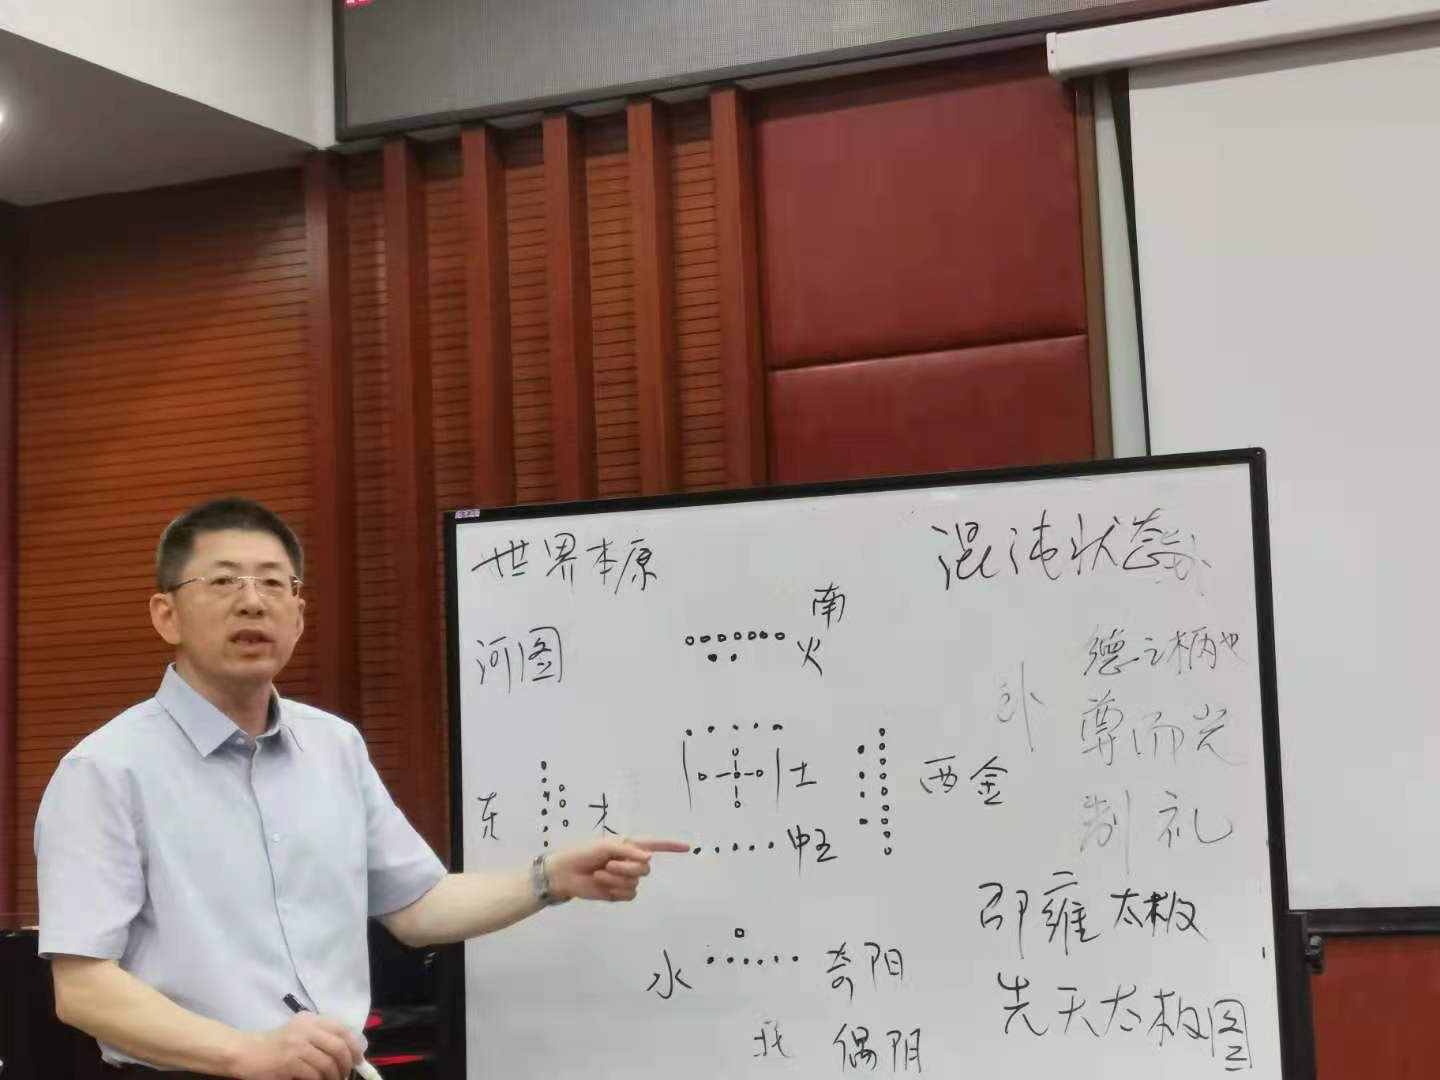 世界本原
混沌状态
河图
南
火
德之柄也
尊而光
制礼
东
木
土
中五
西金
邵雍太极
水
奇阳
先天太极图
北
偶阴